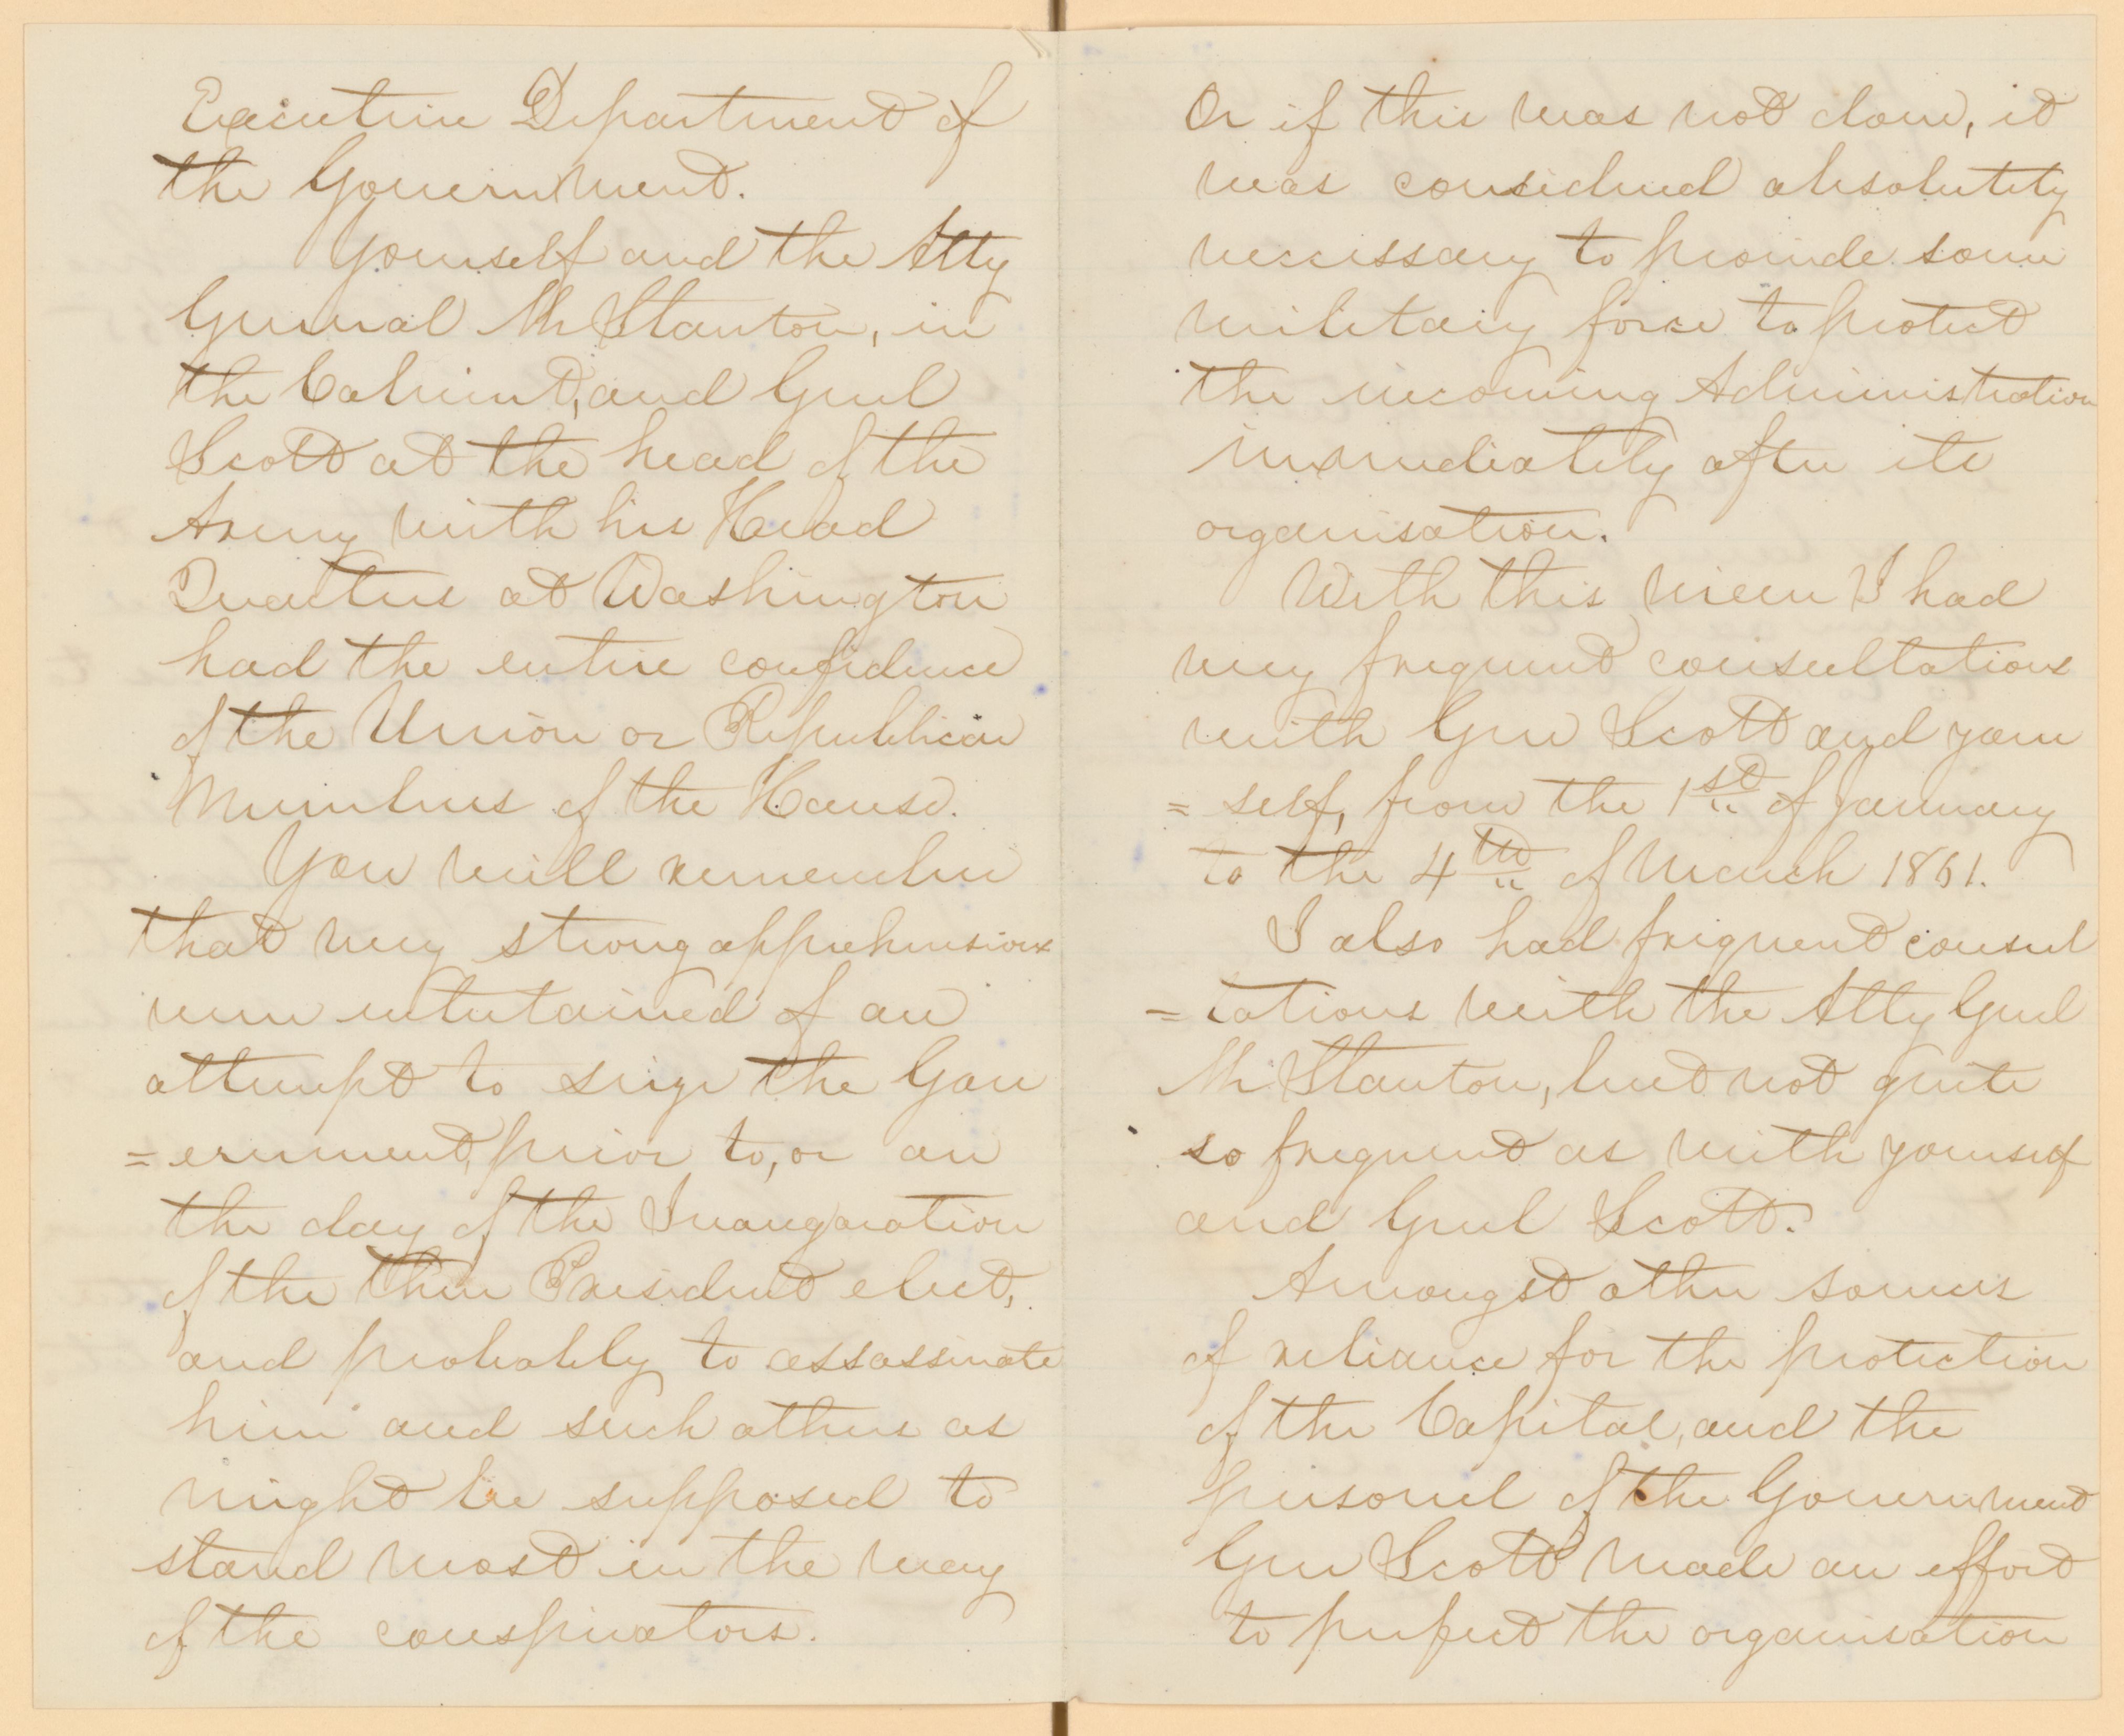 Executive Department of
the Government.
Yourself and the Atty
General Mr Stanton, in
the Cabinet, and Genl
Scott at the head of the
Army with his Head
Quarters at Washington
had the entire confidence
of the Union or Republican
Members of the House.
You will remember
that very strong apprehensions
were entertained of an
attempt to seize the Gov
=ernment, prior to, or on
the day of the Inaugaration
of the then President elect,
and probably to assassinate
him and such others as
might be supposed to
stand most in the way
of the conspirators.
Or if this was not done, it
was considered absolutely
neccessary to provide some
military force to protect
the incoming Administration
immediately after its
organisation.
With this view I had
very frequent consultations
with Gen Scott and your
= self, from the 1st of January
to the 4th of March 1861.
I also had frequent consul
= tations with the Atty Genl
Mr Stanton, but not quite
so frequent as with yourself
and Genl Scott.
Amongst other sources
of reliance for the protection
of the Capital, and the
personel of the Government
Gen Scott made an effort
to perfect the organisation